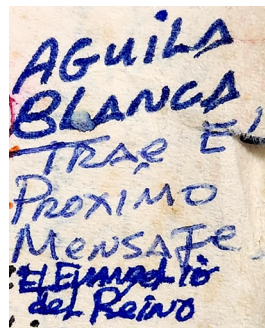 AGUILA
BLANCA
TRAE El
PROXIMO
MENSAJE,
El EVANGELIO
del REINO